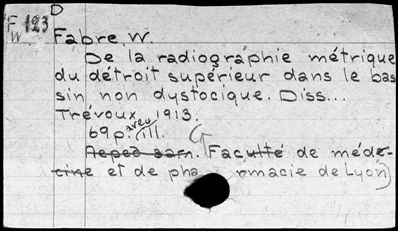 D
F 123
W
Fabre, W.
De la radiographie métrique
du détroit supérieur dans le bas
sin non dystocique. Diss...
Trévoux, 1913.
69 p. avec ill.
Faculté de méde-
cine et de pha rmacie de Lyon)